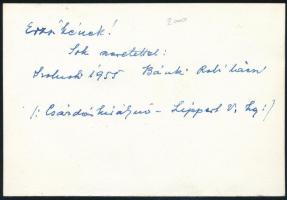 Erzsikének!
2000
Sok szeretettel:
Szolnok 1955 Bánki Robi bácsi
/: Csárdáskirálynő - Lippert V. hg :/